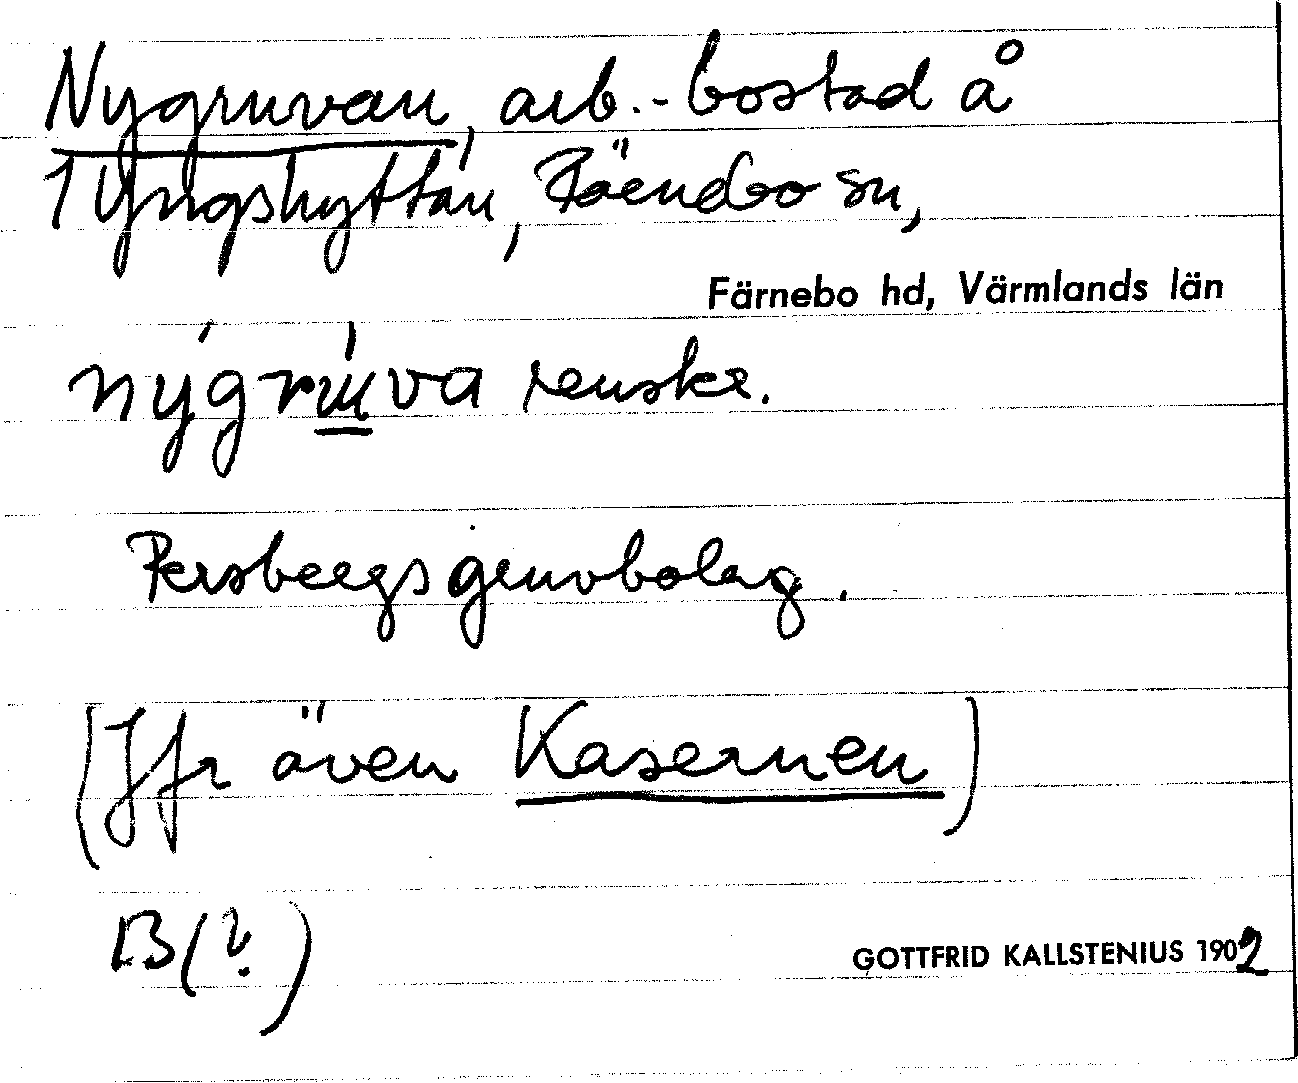 Nygruvan, arb.-bostad å
1 Yngshyttan, Rämbo sn,
Färnebo hd, Värmlands län
nýgrúva renskr.
Persbergs gruvbolag.
(Jfr även Kasernen)
B(?)
GOTTFRID KALLSTENIUS 1902